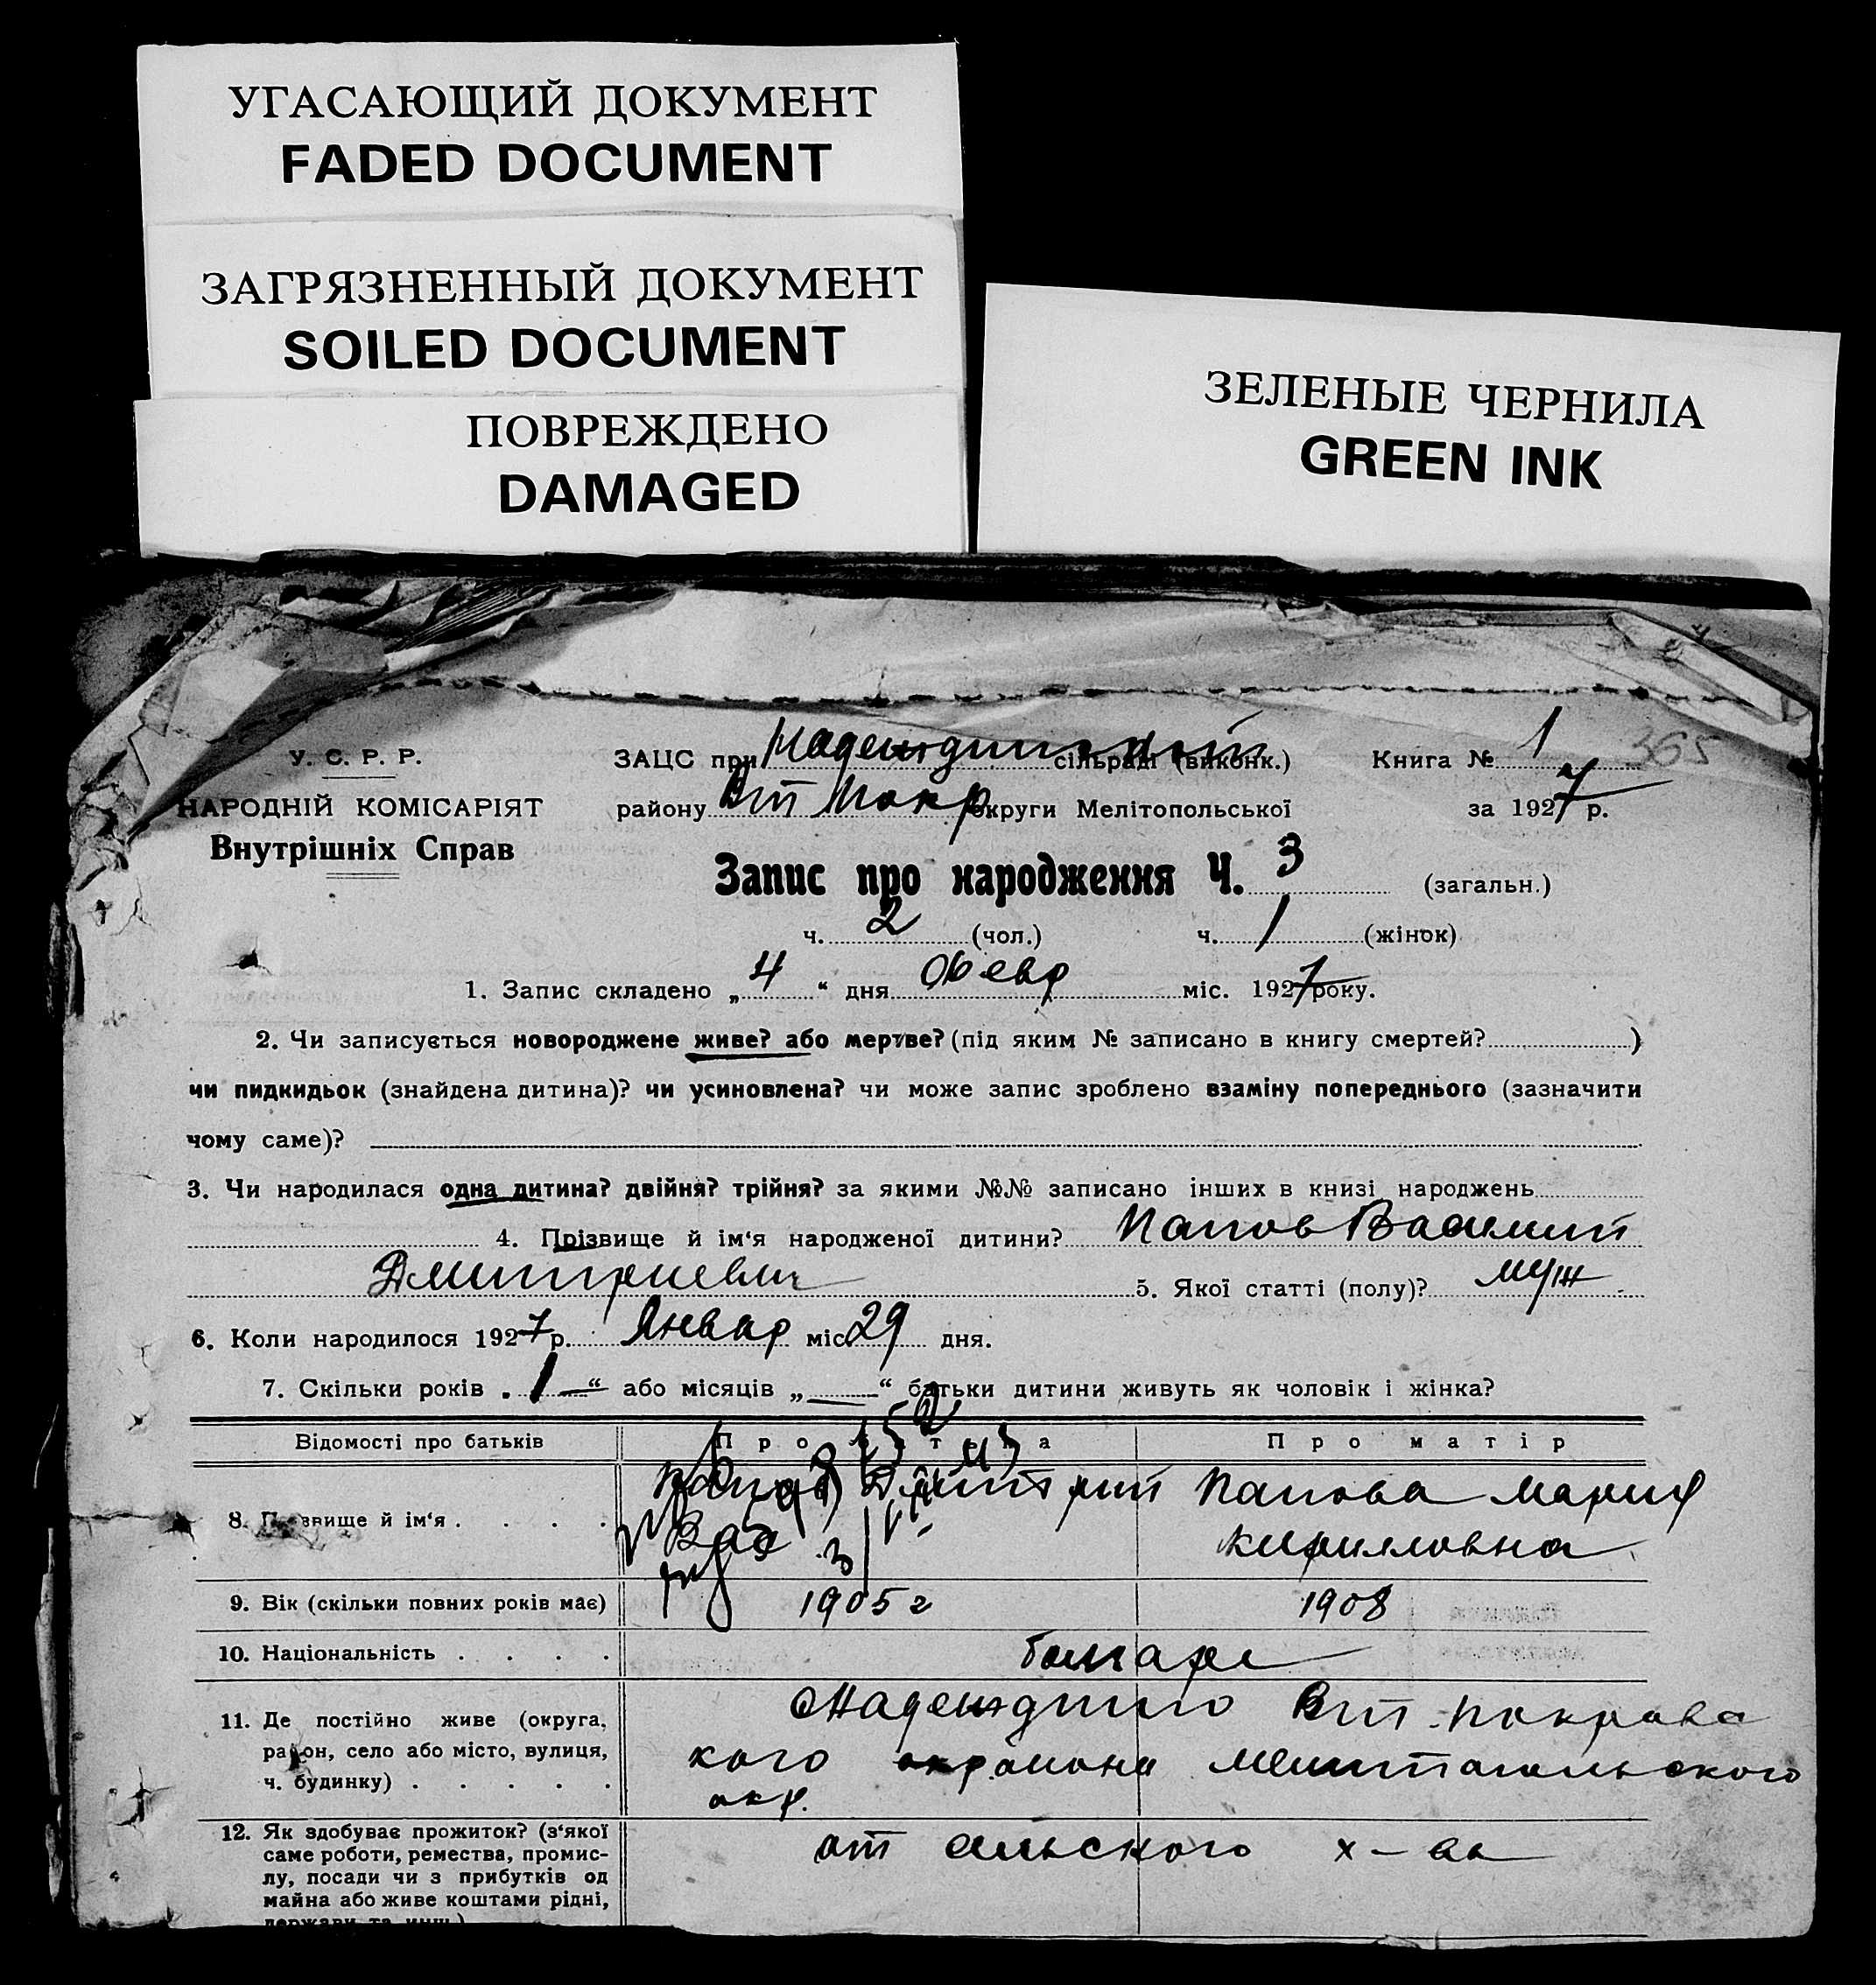 УГАСАЮЩИЙ ДОКУМЕНТ
FADED DOCUMENT
ЗАГРЯЗНЕННЫЙ ДОКУМЕНТ
SOILED DOCUMENT
ПОВРЕЖДЕНО
DAMAGED
ЗЕЛЕНЫЕ ЧЕРНИЛА
GREEN INK
У. С. Р. Р.
НАРОДНІЙ КОМІСАРІЯТ
Внутрішніх Справ
ЗАЦС при Надеждинской сільраді (виконк.) Книга № 1 365
району Вт Покр округи Мелітопольської за 1927 р.
Запис про народження Ч. 3 (загальн.)
ч. 2 (чол.) ч. 1 (жінок)
1. Запис складено „4“ дня Февр міс. 1927 року.
2. Чи записується новороджене живе? або мертве? (під яким № записано в книгу смертей? )
чи пидкидьок (знайдена дитина)? чи усиновлена? чи може запис зроблено взаміну попереднього (зазначити
чому саме)?
3. Чи народилася одна дитина? двійня? трійня? за якими №№ записано інших в книзі народжень
4. Прізвище й ім‘я народженої дитини? Папов Василий
Дмитриевич 5. Якої статті (полу)? муж
6. Коли народилося 1927 р. Январ міс. 29 дня.
7. Скільки років „1“ або місяців „—“ батьки дитини живуть як чоловік і жінка?
Відомості про батьків Про батька Про матір
8. Прізвище й ім‘я . . . . Папов Дмитрий Папова Мария
Кирилловна
9. Вік (скільки повних років має) 1905 г 1908
10. Національність . . . . болгаре
11. Де постійно живе (округа, Надеждино Вт. Покравс
район, село або місто, вулиця, кого района Мелитопольского
ч. будинку) . . . . . окр.
12. Як здобуває прожиток? (з‘якої от сельского х-ва
саме роботи, ремества, промис-
лу, посади чи з прибутків од
майна або живе коштами рідні,
держави та инш.)